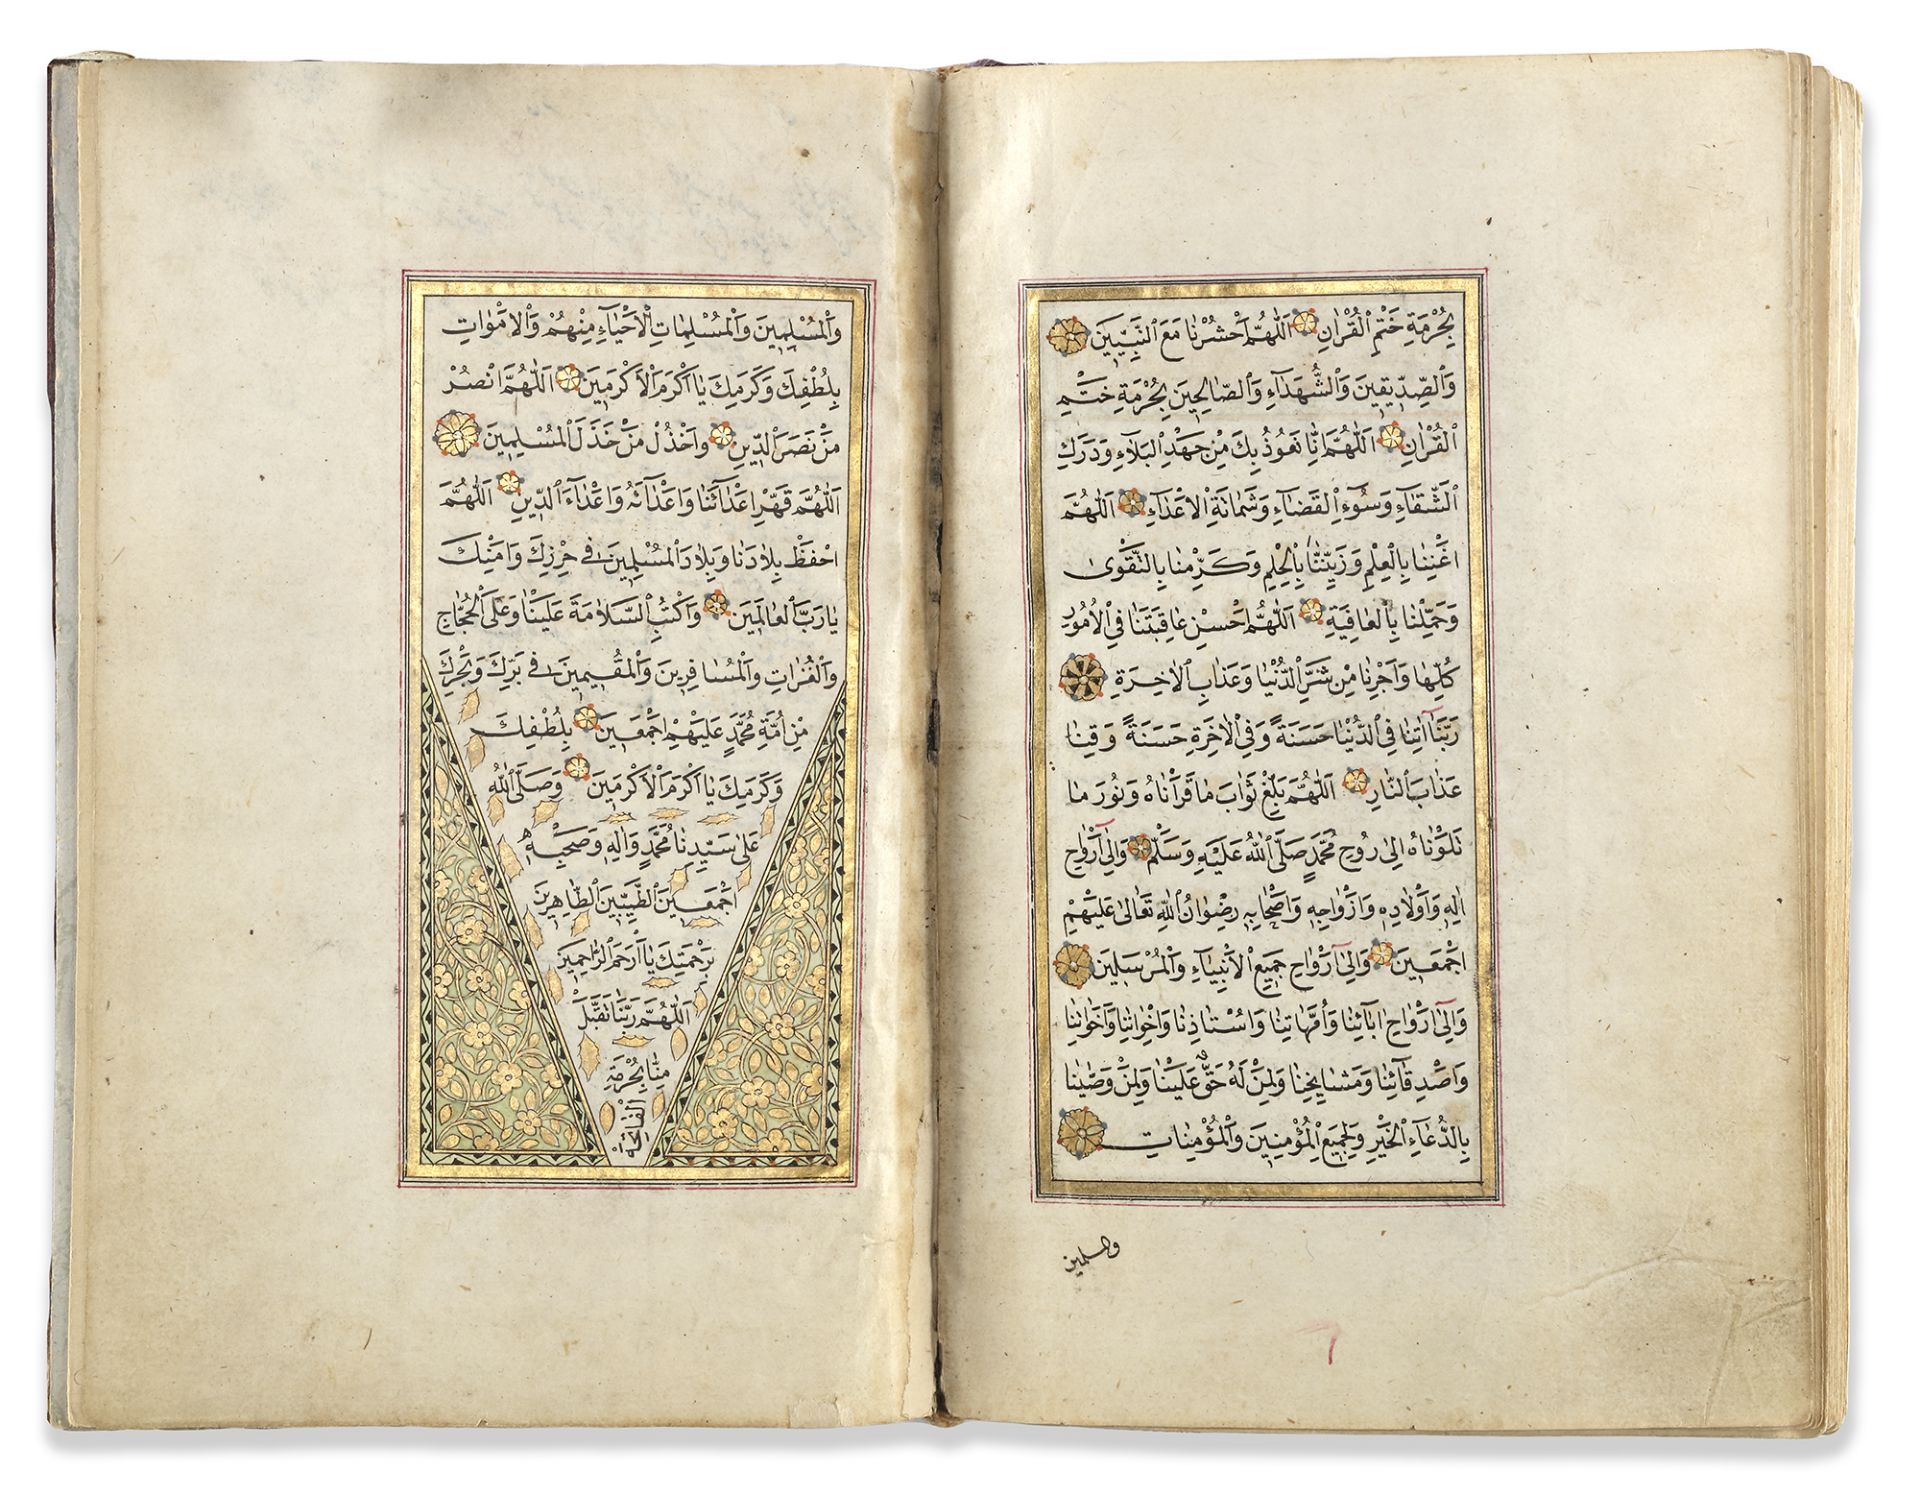 بِحُرْمَةِ خَتْمِ الْقُرْاٰنِ اَللّٰهُمَّ احْشُرْنَا مَعَ النَّبِيّٖينَ
وَالصِّدّٖيقٖينَ وَالشُّهَدَآءِ وَالصَّالِحٖينَ بِحُرْمَةِ خَتْمِ
الْقُرْاٰنِ اَللّٰهُمَّ اِنَّا نَعُوذُ بِكَ مِنْ جَهْدِ الْبَلَآءِ وَدَرَكِ
الشَّقَآءِ وَسُوٓءِ الْقَضَآءِ وَشَمَاتَةِ الْاَعْدَآءِ اَللّٰهُمَّ
اغْنِنَا بِالْعِلْمِ وَزَيِّنَّا بِالْحِلْمِ وَكَرِّمْنَا بِالتَّقْوٰى
وَجَمِّلْنَا بِالْعَافِيَةِ اَللّٰهُمَّ احْسِنْ عَاقِبَتَنَا فِي الْاُمُورِ
كُلِّهَا وَاَجِرْنَا مِنْ شَرِّ الدُّنْيَا وَعَذَابِ الْاٰخِرَةِ
رَبَّنَآ اٰتِنَا فِي الدُّنْيَا حَسَنَةً وَفِي الْاٰخِرَةِ حَسَنَةً وَقِنَا
عَذَابَ النَّارِ اَللّٰهُمَّ بَلِّغْ ثَوَابَ مَا قَرَأْنَاهُ وَنُورَ مَا
تَلَوْنَاهُ اِلٰى رُوحِ مُحَمَّدٍ صَلَّى اللّٰهُ عَلَيْهِ وَسَلَّمَ وَاِلٰٓى اَرْوَاحِ
اٰلِهٖ وَاَوْلَادِهٖ وَاَزْوَاجِهٖ وَاَصْحَابِهٖ رِضْوَانُ اللّٰهِ تَعَالٰى عَلَيْهِمْ
اَجْمَعٖينَ وَاِلٰٓى اَرْوَاحِ جَمِيعِ الْاَنْبِيَآءِ وَالْمُرْسَلٖينَ
وَاِلٰٓى اَرْوَاحِ اٰبَآئِنَا وَاُمَّهَاتِنَا وَاُسْتَاذِنَا وَاِخْوَانِنَا وَاَخَوَاتِنَا
وَاَصْدِقَآئِنَا وَمَشَايِخِنَا وَلِمَنْ لَهُ حَقٌّ عَلَيْنَا وَلِمَنْ وَصَّيْنَا
بِالدُّعَآءِ الْخَيْرِ وَلِجَمِيعِ الْمُؤْمِنٖينَ وَالْمُؤْمِنَاتِ
والمسلمين
وَالْمُسْلِمٖينَ وَالْمُسْلِمَاتِ الْاَحْيَآءِ مِنْهُمْ وَالْاَمْوَاتِ
بِلُطْفِكَ وَكَرَمِكَ يَا اَكْرَمَ الْاَكْرَمٖينَ اَللّٰهُمَّ انْصُرْ
مَنْ نَصَرَ الدّٖينَ وَاخْذُلْ مَنْ خَذَلَ الْمُسْلِمٖينَ
اَللّٰهُمَّ قَهِّرْ اَعْدَآئَنَا وَاَعْدَآئَهُ وَاَعْدَآءَ الدّٖينِ اَللّٰهُمَّ
احْفَظْ بِلَادَنَا وَبِلَادَ الْمُسْلِمٖينَ فٖي حِرْزِكَ وَاَمْنِكَ
يَا رَبَّ الْعَالَمٖينَ وَاكْتُبِ السَّلَامَةَ عَلَيْنَا وَعَلَى الْحُجَّاجِ
وَالْغُزَاتِ وَالْمُسَافِرٖينَ وَالْمُقٖيمٖينَ فٖي بَرِّكَ وَبَحْرِكَ
مِنْ اُمَّةِ مُحَمَّدٍ عَلَيْهِمْ اَجْمَعٖينَ بِلُطْفِكَ
وَكَرَمِكَ يَا اَكْرَمَ الْاَكْرَمٖينَ وَصَلَّى اللّٰهُ
عَلٰى سَيِّدِنَا مُحَمَّدٍ وَاٰلِهٖ وَصَحْبِهٖ
اَجْمَعٖينَ الطَّيِّبٖينَ الطَّاهِرٖينَ
بِرَحْمَتِكَ يَا اَرْحَمَ الرَّاحِمٖينَ
اَللّٰهُمَّ رَبَّنَا تَقَبَّلْ
مِنَّا بِحُرْمَةِ
الْفَاتِحَةِ